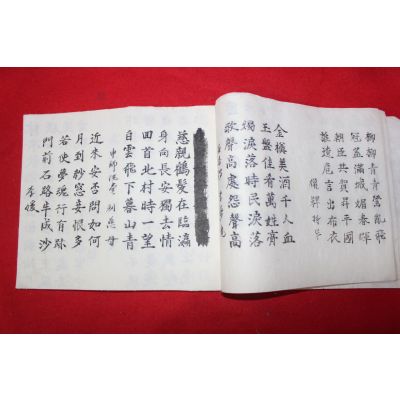 柳柳青青鶯亂飛
冠蓋滿城媚春暉
朝臣共賀昇平國
誰遣危言出布衣
金樽美酒千人血
玉盤佳肴萬姓膏
燭淚落時民淚落
歌聲高處怨聲高
慈親鶴髮在臨瀛
身向長安獨去情
回首北村時一望
白雲飛下暮山青
申師任堂 別慈母
近來安否問如何
月到紗窓妾恨多
若使夢魂行有跡
門前石路半成沙
李媛